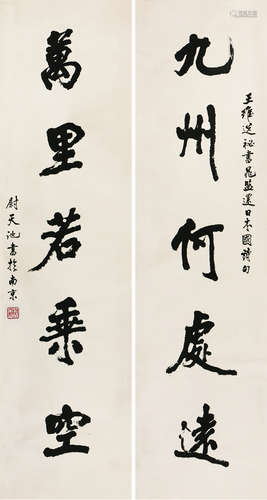 九州何處遠
王維送祕書晁監還日本國詩句
萬里若乘空
尉天池書於南京